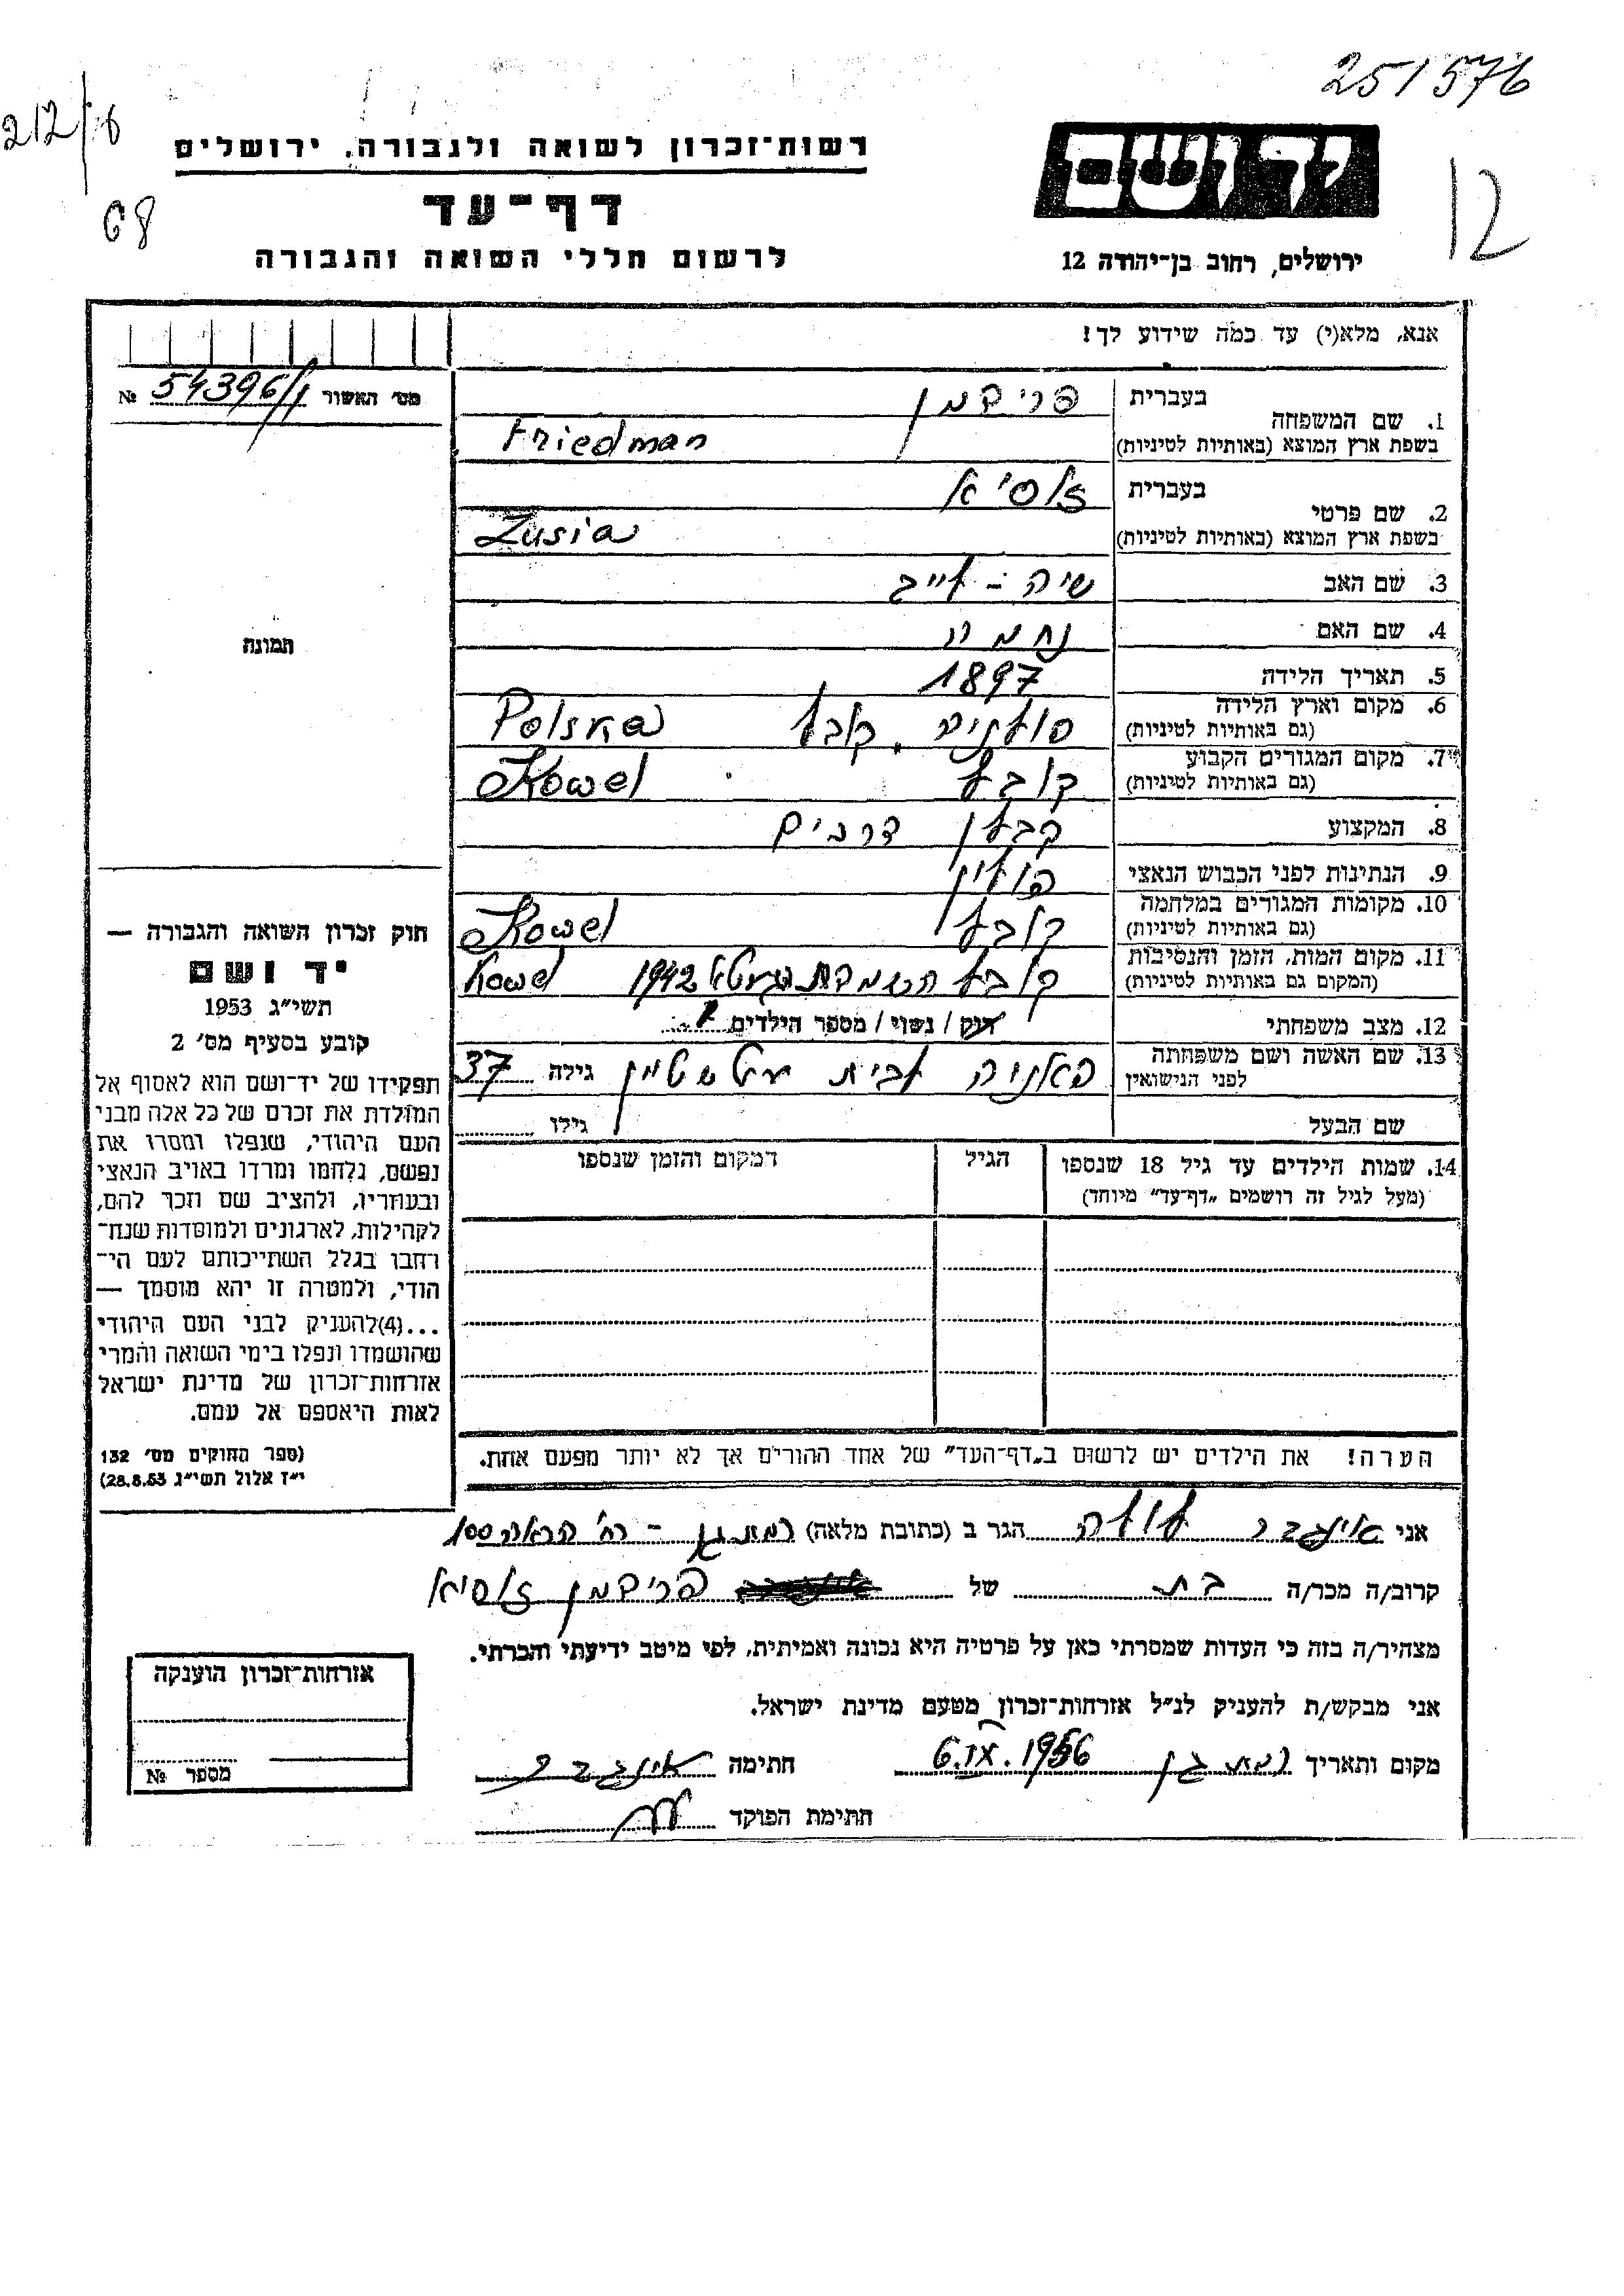 251576
212/6
68
12
יד ושם
ירושלים, רחוב בן-יהודה 12
רשות-זכרון לשואה ולגבורה, ירושלים
דף-עד
לרשום חללי השואה והגבורה
אנא, מלא(י) עד כמה שידוע לך!
מס׳ האשור 54396/1 №
תמונה
בעברית פרידמן
1. שם המשפחה
בשפת ארץ המוצא (באותיות לטיניות) Friedman
בעברית זוסיא
2. שם פרטי
בשפת ארץ המוצא (באותיות לטיניות) Zusia
3. שם האב שיה - לייב
4. שם האם נחמה
5. תאריך הלידה 1897
6. מקום וארץ הלידה קובל Polska
(גם באותיות לטיניות)
7. מקום המגורים הקבוע קובל Kowel
(גם באותיות לטיניות)
8. המקצוע קבלן דרכים
9. הנתינות לפני הכבוש הנאצי פולין
10. מקומות המגורים במלחמה קובל Kowel
(גם באותיות לטיניות)
11. מקום המות, הזמן והנסיבות קובל השמדת הגיטו 1942 Kowel
(המקום גם באותיות לטיניות)
12. מצב משפחתי רווק / נשוי / מספר הילדים
13. שם האשה ושם משפחתה לבית גילה 37
לפני הנישואין
שם הבעל גילו
14. שמות הילדים עד גיל 18 שנספו הגיל המקום והזמן שנספו
(מעל לגיל זה רושמים „דף-עד״ מיוחד)
הערה! את הילדים יש לרשום ב„דף-העד״ של אחד ההורים אך לא יותר מפעם אחת.
חוק זכרון השואה והגבורה —
יד ושם
תשי״ג 1953
קובע בסעיף מס׳ 2
תפקידו של יד-ושם הוא לאסוף אל
המולדת את זכרם של כל אלה מבני
העם היהודי, שנפלו ומסרו את
נפשם, נלחמו ומרדו באויב הנאצי
ובעוזריו, ולהציב שם וזכר להם,
לקהילות, לארגונים ולמוסדות שנח-
רבו בגלל השתייכותם לעם הי-
הודי, ולמטרה זו יהא מוסמך —
...(4)להעניק לבני העם היהודי
שהושמדו ונפלו בימי השואה והמרי
אזרחות-זכרון של מדינת ישראל
לאות היאספם אל עמם.
(ספר החוקים מס׳ 132
י״ז אלול תשי״ג 28.8.53)
אני אינגבר הגר ב (כתובת מלאה) רמת גן - רח׳ הרא״ה 100
קרוב/ה מכר/ה בת של פרידמן זוסיא
מצהיר/ה בזה כי העדות שמסרתי כאן על פרטיה היא נכונה ואמיתית, לפי מיטב ידיעתי והכרתי.
אני מבקש/ת להעניק לנ״ל אזרחות-זכרון מטעם מדינת ישראל.
מקום ותאריך רמת גן 1956 חתימה אינגבר
חתימת הפוקד
אזרחות-זכרון הוענקה
מספר №